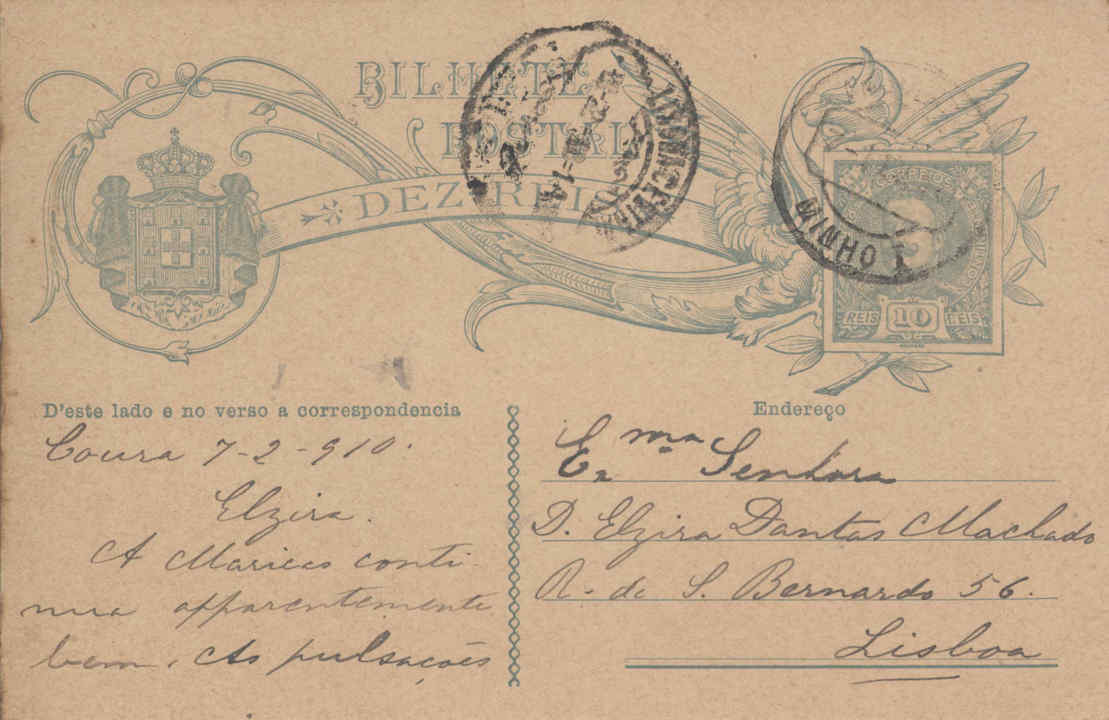 BILHETE
POSTAL
DEZ REIS
CORREIOS
MINHO
REIS 10 REIS
D'este lado e no verso a correspondencia
Endereço
Coura 7-2-910.
Elzira.
A Maricas conti-
nua apparentemente
bem. As pulsações
Exma Senhora
D. Elzira Dantas Machado
R. de S. Bernardo 56.
Lisboa